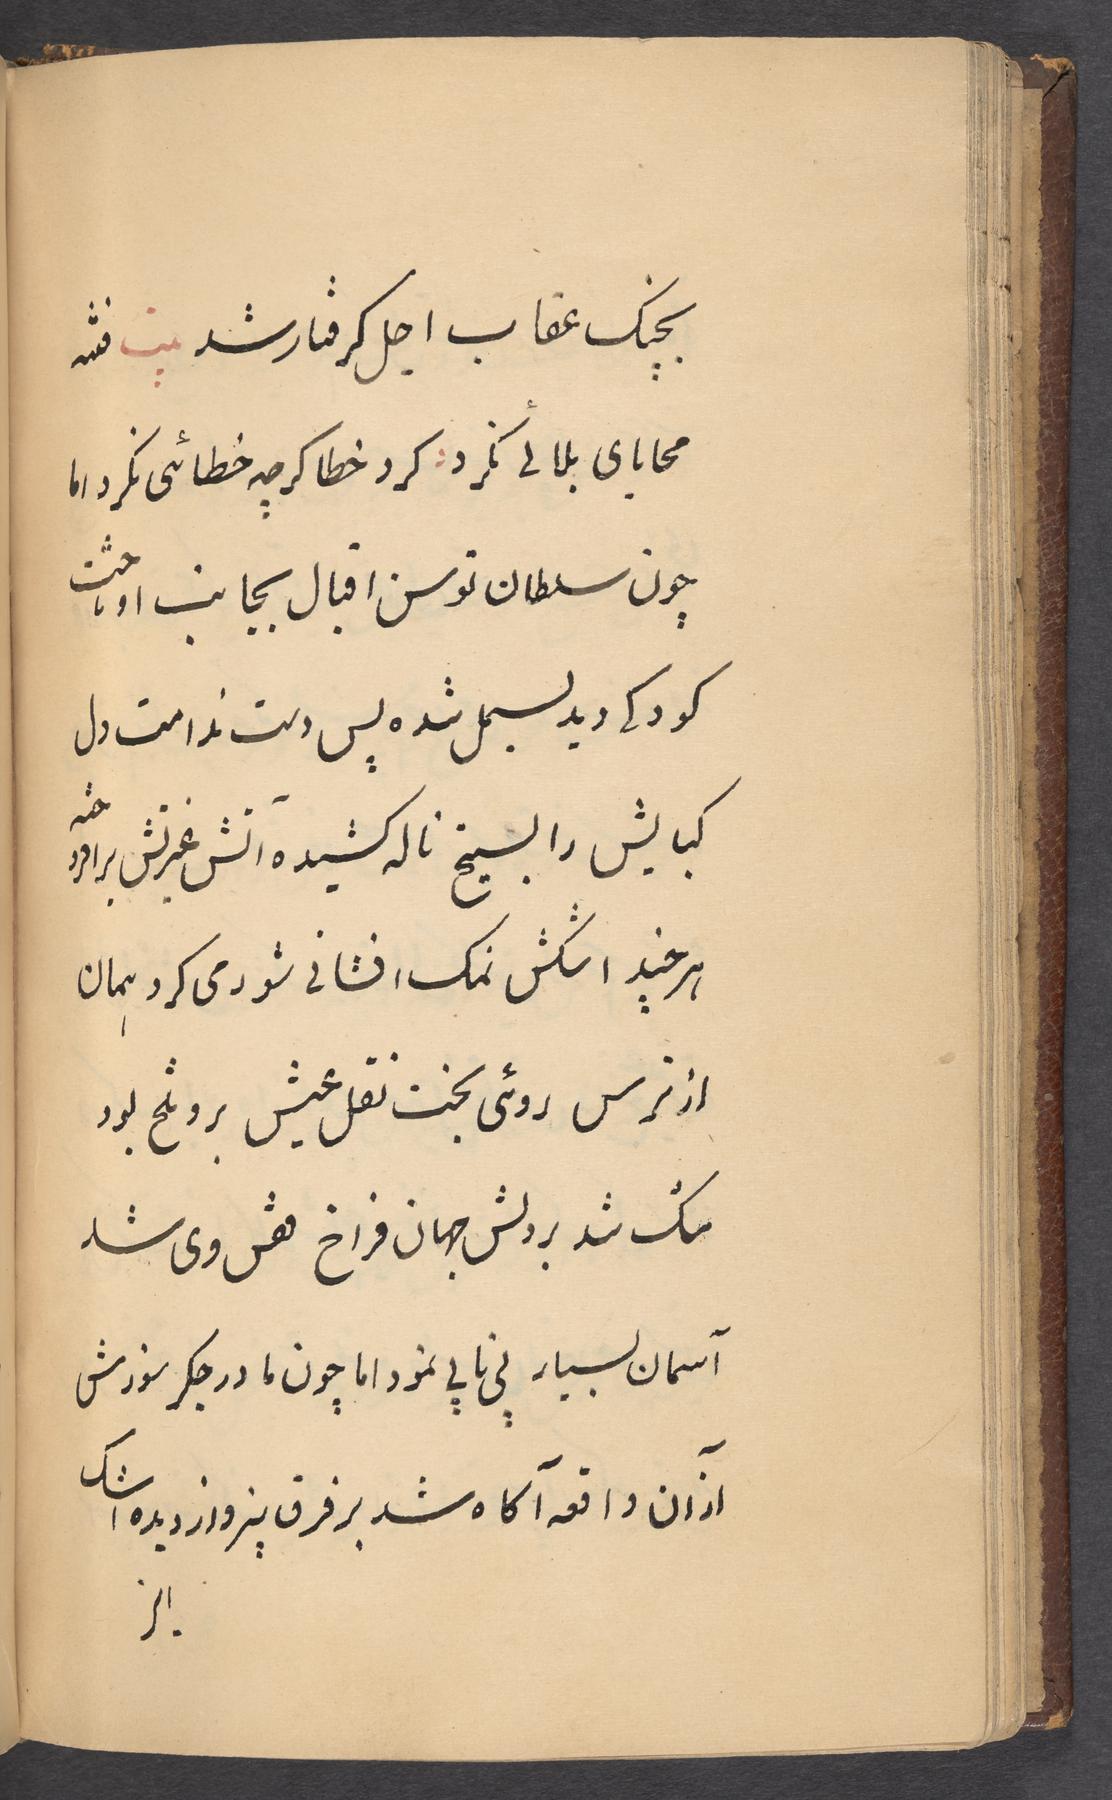 بچنک عقاب اجل کرفتار شد بیت فتنه
محابای بلائے نکرد کرد خطا کرچه خطائی نکرد اما
چون سلطان توسن اقبال بجانب او تاخت
کودکے دید بسمل شده پس دست ندامت دل
کبابش را بسیخ ناله کشیده آتش غیرتش برافروخته
هر چند اشکش نمک افشانے شور می کرد همان
از ترس روئی بخت نقل عیش برو تلخ بود
تنک شد بر دلش جهان فراخ قفس وی شد
آسمان بسیار پی تاپے نمود اما چون مادر جکر سوزش
ازآن واقعه آکاه شد بر فرق پنروازدیده اشک